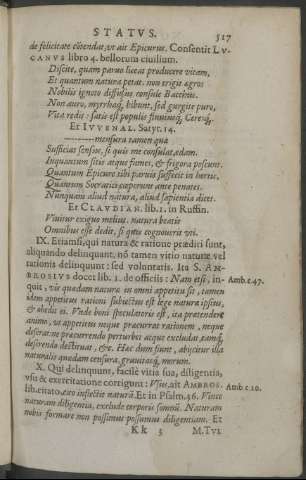 STATVS. 527
de felicitate cōtendat, vt ait Epicurus. Consentit LV-
CANVS libro 4. bellorum ciuilium.
Discite, quàm paruo liceat producere vitam,
Et quantum natura petat. non erigit ægros
Nobilis ignoto diffusus consule Bacchus.
Non auro, myrrhaq́; bibunt. sed gurgite puro,
Vita redit: satis est populis fluuiusq́; Ceresq́;
Et IVVENAL. Satyr. 14.
mensura tamen quæ
Sufficiat census, si quis me consulat, edam.
Inquantum sitis atque fames, & frigora poscunt.
Quantum Epicure tibi paruis suffecit in hortis.
Quantum Socratici ceperunt ante penates.
Nunquam aliud natura, aliud sapientia dicit.
Et CLAVDIAN. lib. 1. in Ruffin.
Viuitur exiguo melius. natura beatis
Omnibus esse dedit, si quis cognouerit vti.
IX. Etiamsi, qui natura & ratione præditi sunt,
aliquando delinquunt, nō tamen vitio naturæ vel
rationis delinquunt: sed voluntatis. Ita S. AM-
BROSIVS docet lib. 1. de officiis: Nam etsi, in- Amb. c. 47.
quit, vis quædam naturæ in omni appetitu sit, tamen
idem appetitus rationi subiectus est lege naturæ ipsius,
& obedit ei. Vnde boni speculatoris est, ita prætendere
animo, vt appetitus neque præcurrat rationem, neque
deserat: ne præcurrendo perturbet atque excludat, eamq́;
deserendo destituat, &c. Hac dum fiunt, abiicitur illa
naturalis quædam censura, grauitasq́; morum.
X. Qui delinquunt, facilè vitia sua, diligentia,
vsu & exercitatione corrigunt: Vsus, ait AMBROS. Amb. c. 10.
lib. citato, inflectit naturā. Et in Psalm. 36. Vince
naturam diligentia, exclude corporis somnū. Naturam
nobis formare non possumus possumus diligentiam. Et
Kk 3 M.TVL